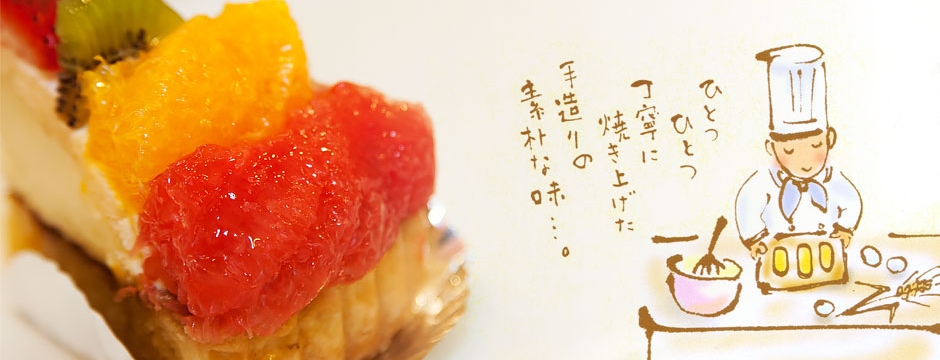 ひとつ
ひとつ
丁寧に
焼き上げた
手造りの
素朴な味…。